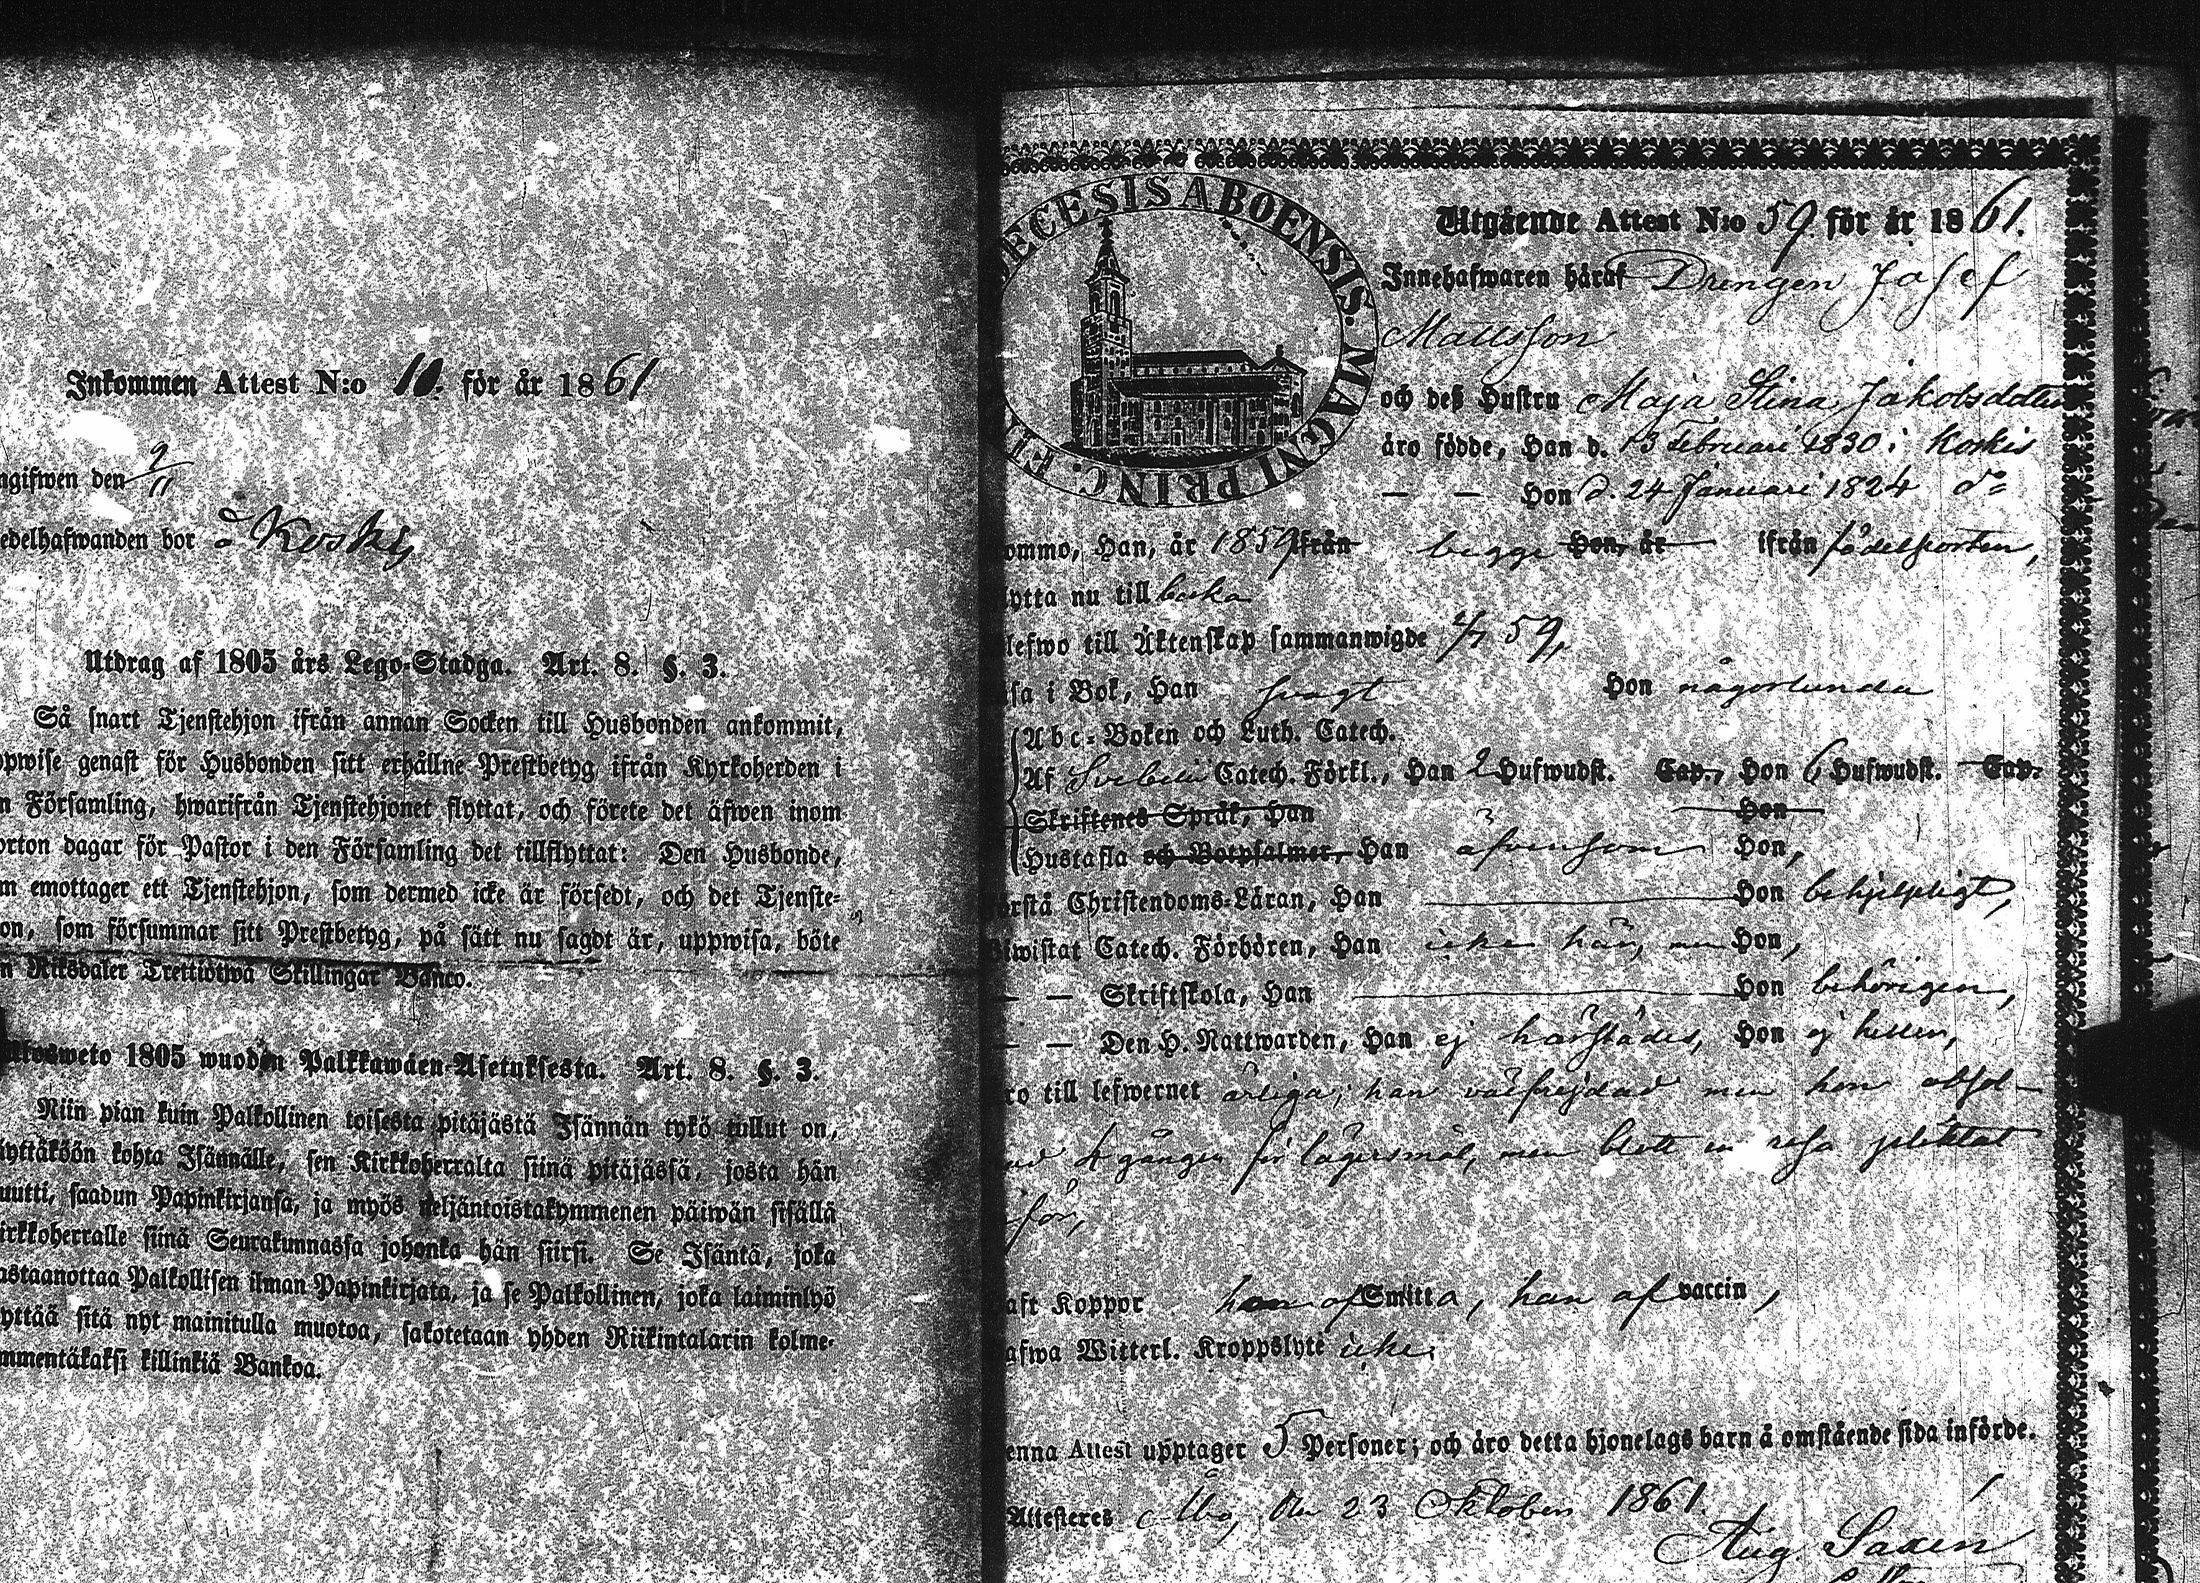 Inkommen Attest N:o 10. för år 1861
ngifwen den 9/11
edelhafwanden bor å Koskis
Utdrag af 1805 års Lego-Stadga. Art. 8. §. 3.
Så snart Tjenstehjon ifrån annan Socken till Husbonden ankommit,
ppwise genast för Husbonden sitt erhållne Prestbetyg ifrån Kyrkoherden i
n Församling, hwarifrån Tjenstehjonet flyttat, och förete det äfwen inom
orton dagar för Pastor i den Församling det tillflyttat: Den Husbonde,
m emottager ett Tjenstehjon, som dermed icke är försedt, och det Tjenste-
on, som försummar sitt Prestbetyg, på sätt nu sagdt är, uppwisa, böte
n Riksdaler Trettiotwå Skillingar Banco.
losweto 1805 wuoden Palkkawäen-Asetuksesta. Art. 8. §. 3.
Niin pian kuin Palkollinen toisesta pitäjästä Isännän tykö tullut on,
yttäköön kohta Isännälle, sen Kirkkoherralta siinä pitäjässä, josta hän
uutti, saadun Papinkirjansa, ja myös neljäntoistakymmenen päiwän sisällä
irkkoherralle siinä Seurakunnassa johonka hän siirsi. Se Isäntä, joka
astaanottaa Palkollisen ilman Papinkirjata, ja se Palkollinen, joka laiminlyö
yttää sitä nyt mainitulla muotoa, sakotetaan yhden Riikintalarin kolme-
mmentäkaksi killinkiä Bankoa.
ECESIS ABOENSIS. MAGNI PRINC. FI
Utgående Attest N:o 59 för år 1861.
Innehafwaren häraf Drengen Josef
Mattsson
och deß Hustru Maja Stina Jakobsdotter
äro födde, Han d. 13 Februari 1830 i Koskis
— — Hon d. 24 Januari 1824 do
ommo, Han, år 1859 ifrån begge Hon, år ifrån födelseorten,
lytta nu tillbaka
lefwo till Äktenskap sammanwigde 4/7 59,
sa i Bok, Han svagt Hon någorlunda
Abc-Boken och Luth. Catech.
Af Svebelii Catech. Förkl., Han 2 Hufwudst. Cap., Hon 6 Hufwudst. Cap.
Skriftenes Språk, Han Hon
Hustafla och Botpsalmer, Han äfvensom Hon,
örstå Christendoms-Läran, Han Hon behjelpligt,
iwistat Catech. Förhören, Han icke här, men Hon,
— — Skriftskola, Han Hon behörigen,
— — Den H. Nattwarden, Han ej härstädes, Hon ej heller,
ro till lefwernet ärliga; han välfrejdad men hon absol-
ad 4 gånger för lägersmål, men blott en resa pliktat
för,
aft Koppor hon af Smitta, han af vaccin,
afwa Witterl. Kroppslyte icke.
enna Attest upptager 5 Personer; och äro detta hjonelags barn å omstående sida införde.
Attesteres Åbo, den 23 Oktober 1861.
Aug. Saxén